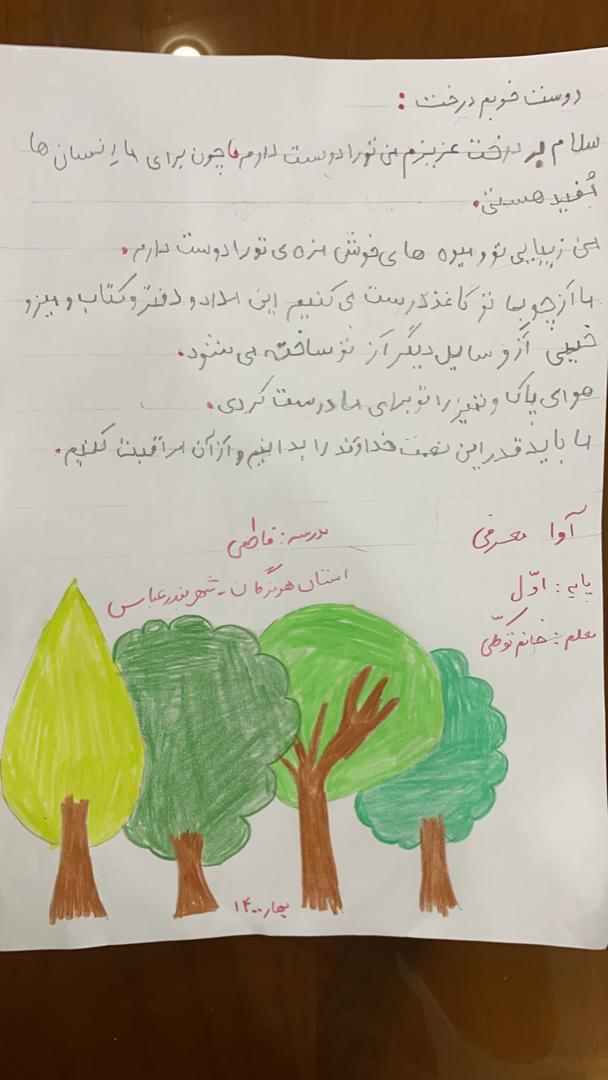 دوست خوبم درخت :
سلام بر درخت عزیزم من تو را دوست دارم چون برای ما انسان ها
مُفید هستی.
من زیبایی تو و میوه های خوش مزه ی تو را دوست دارم.
ما از چوب تو کاغذ درست می کنیم این مداد و دفتر و کتاب و میز و
خیلی از وسایل دیگر از تو ساخته می شود.
هوای پاک و تمیز را تو برای ما درست کردی.
ما باید قدر این نعمت خداوند را بدانیم و از آن مراقبت کنیم.
آوا معرفی
مدرسه : فاطمی
پایه : اوّل
استان هرمزگان - شهر بندرعباس
معلم : خانم توکّلی
بهار ۱۴۰۰